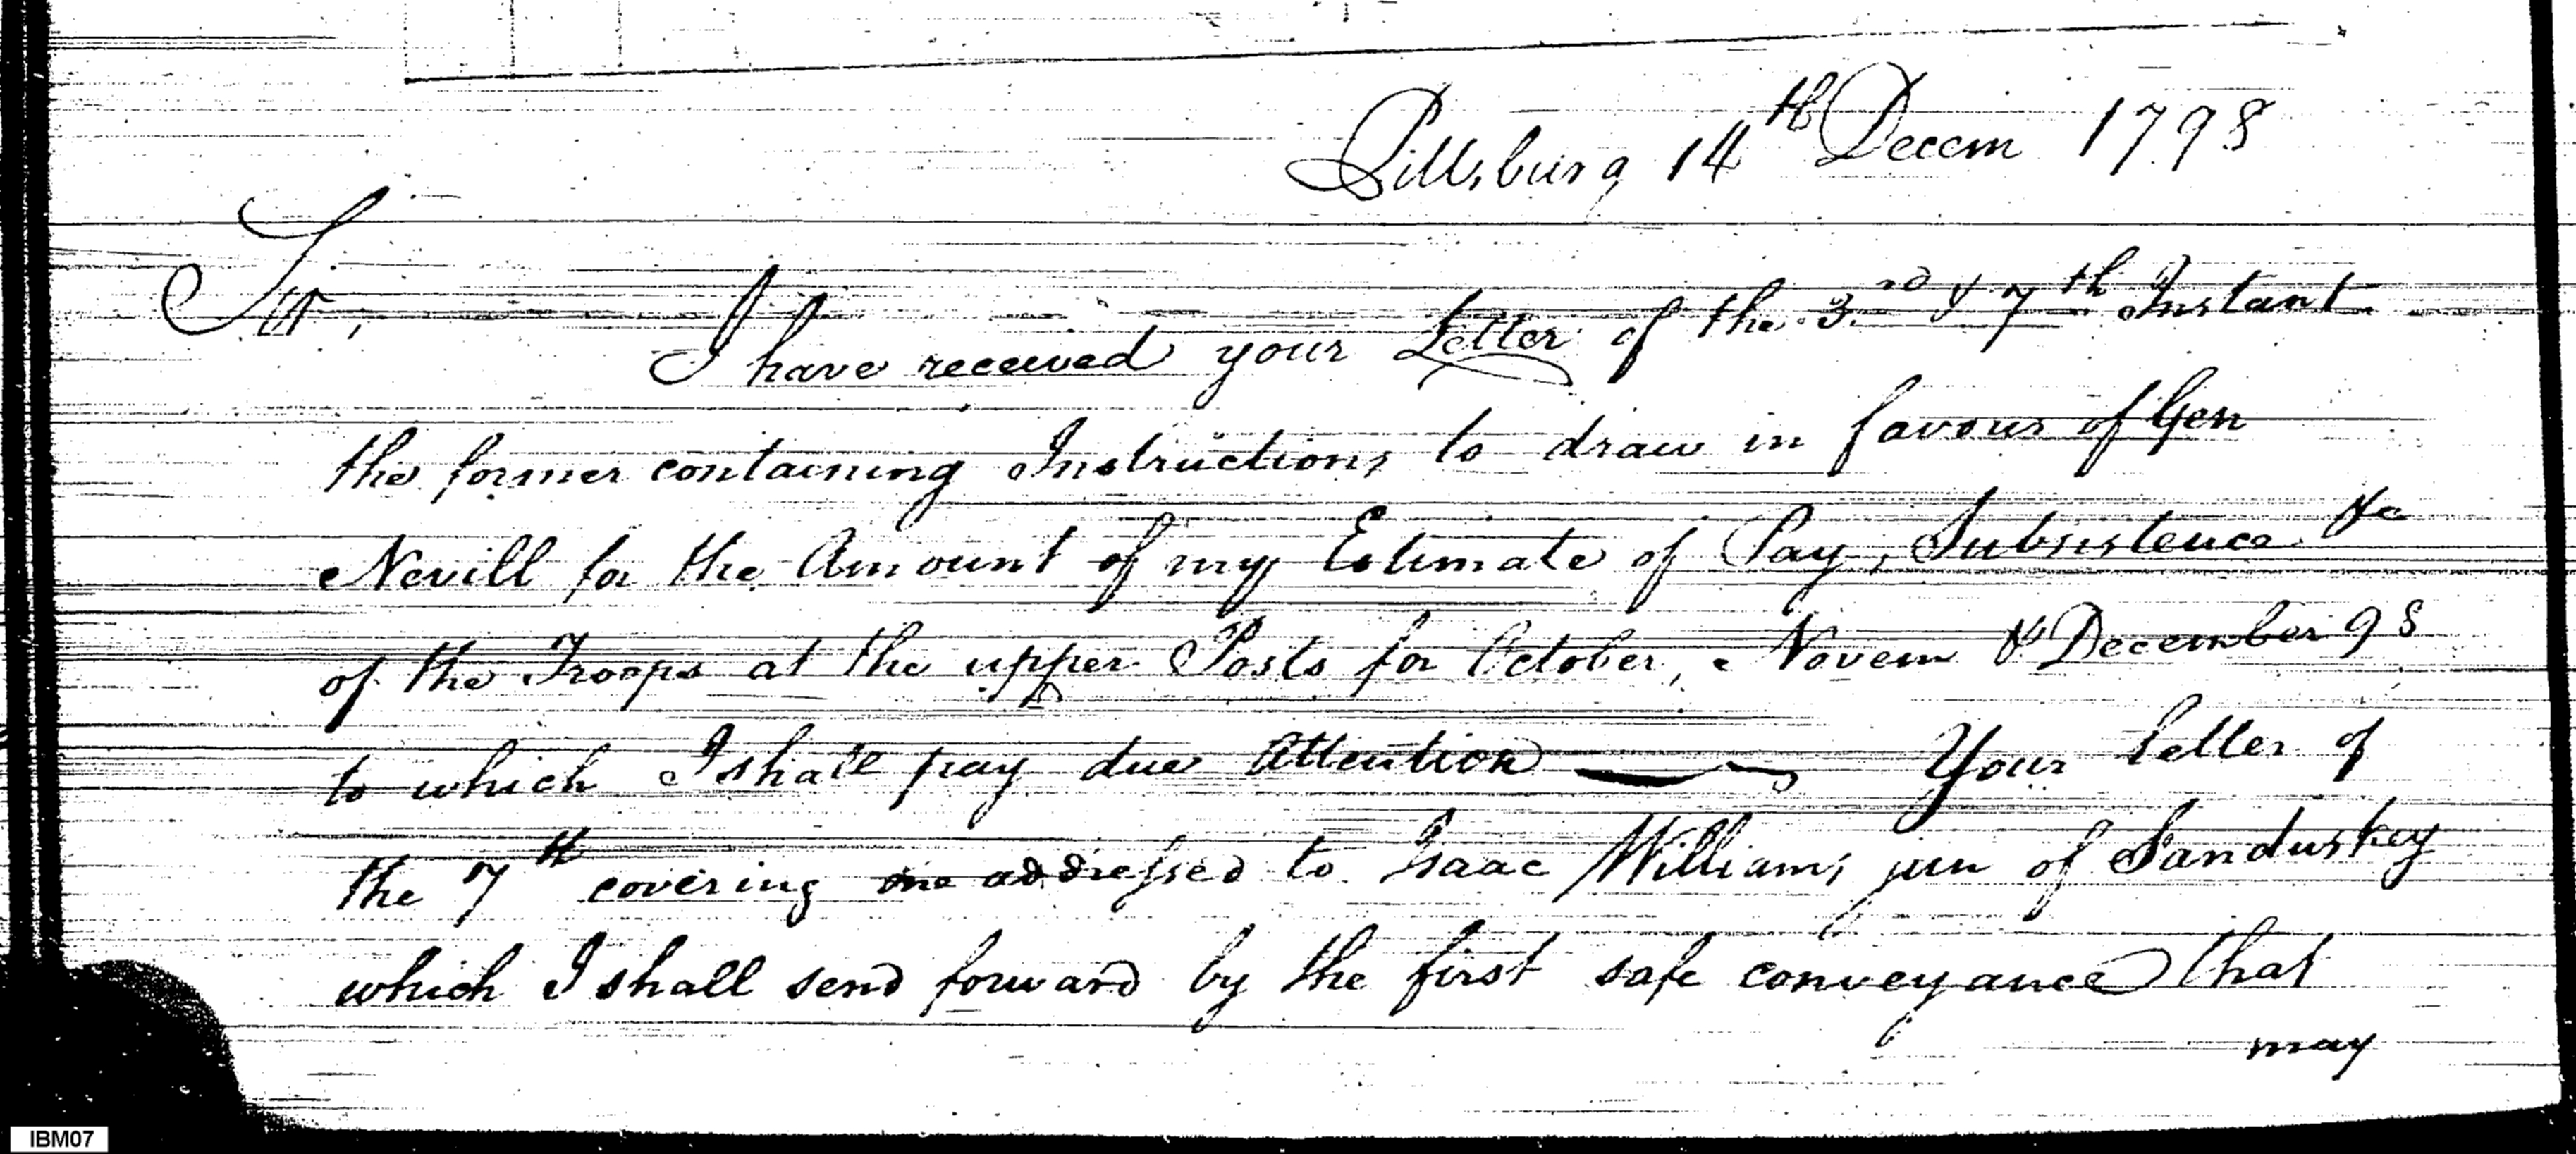 Pittsburg 14th Decem 1798
Sir,
I have received your Letter of the 3rd & 7th Instant
the former containing Instructions to draw in favour of Gen
Nevill for the Amount of my Estimate of Pay, Subsistence &c
of the Troops at the upper Posts for October, Novem & December 98
to which I shall pay due Attention — Your letter of
the 7th covering one addressed to Isaac Williams jun of Sanduskey
which I shall send forward by the first safe conveyance that
may
IBM07